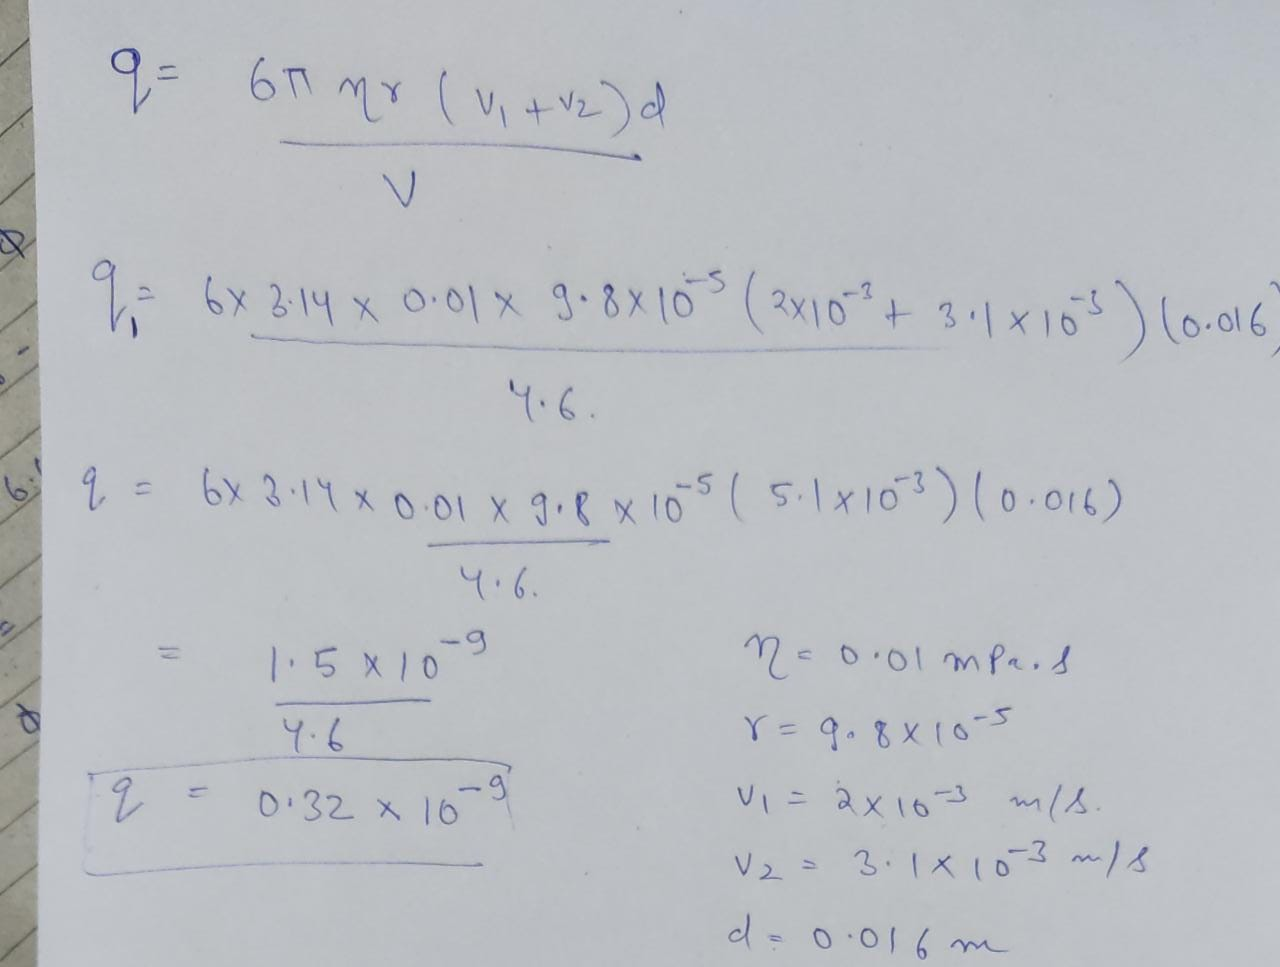 q = 6π ηr (v₁ + v₂)d
V
q₁ = 6 x 3.14 x 0.01 x 9.8 x 10⁻⁵ (2x10⁻³ + 3.1 x 10⁻³) (0.016)
4.6.
q = 6 x 3.14 x 0.01 x 9.8 x 10⁻⁵ ( 5.1 x 10⁻³) (0.016)
4.6.
= 1.5 x 10⁻⁹
4.6
q = 0.32 x 10⁻⁹
η = 0.01 mPa.s
r = 9.8 x 10⁻⁵
v₁ = 2 x 10⁻³ m/s.
v₂ = 3.1 x 10⁻³ m/s
d = 0.016 m